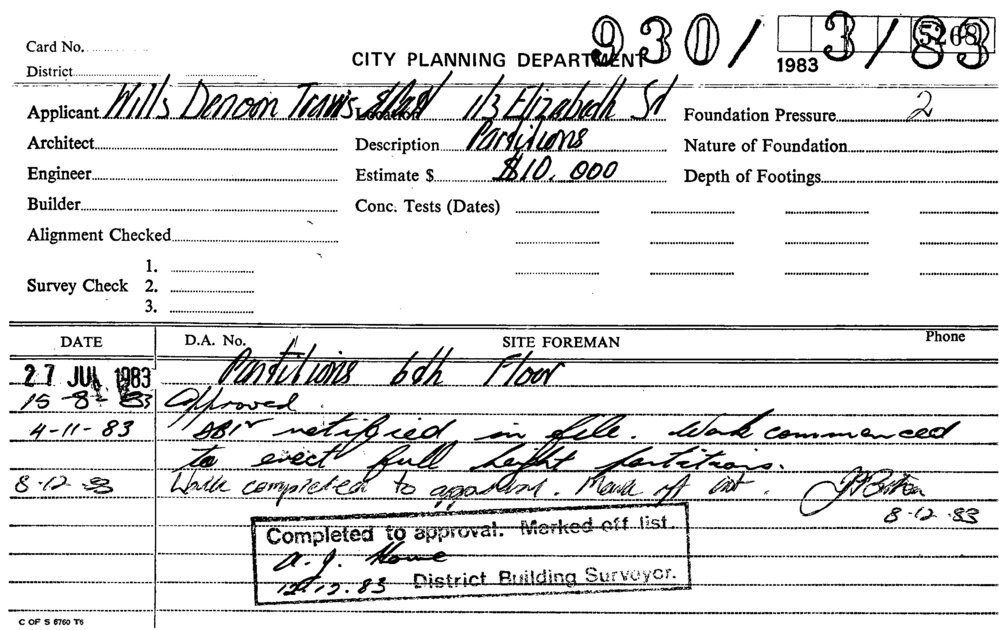 930/3/83
5268
Card No.
CITY PLANNING DEPARTMENT
1983
District
Applicant Wills Denoon Travis Location 1/3 Elizabeth St Foundation Pressure 2
Architect Description Partitions Nature of Foundation
Engineer Estimate $ $10,000 Depth of Footings
Builder Conc. Tests (Dates)
Alignment Checked
1.
Survey Check 2.
3.
DATE D.A. No. SITE FOREMAN Phone
27 JUL 1983 Partitions 6th Floor
15-8-83 Approved.
4-11-83 notified in file. Work commenced
to erect full height partitions.
8-12-83 Work completed to approval. Mark off list.
8-12-83
Completed to approval. Marked off list.
A. J. Howe
12.12.83 District Building Surveyor.
C OF S 6760 T6